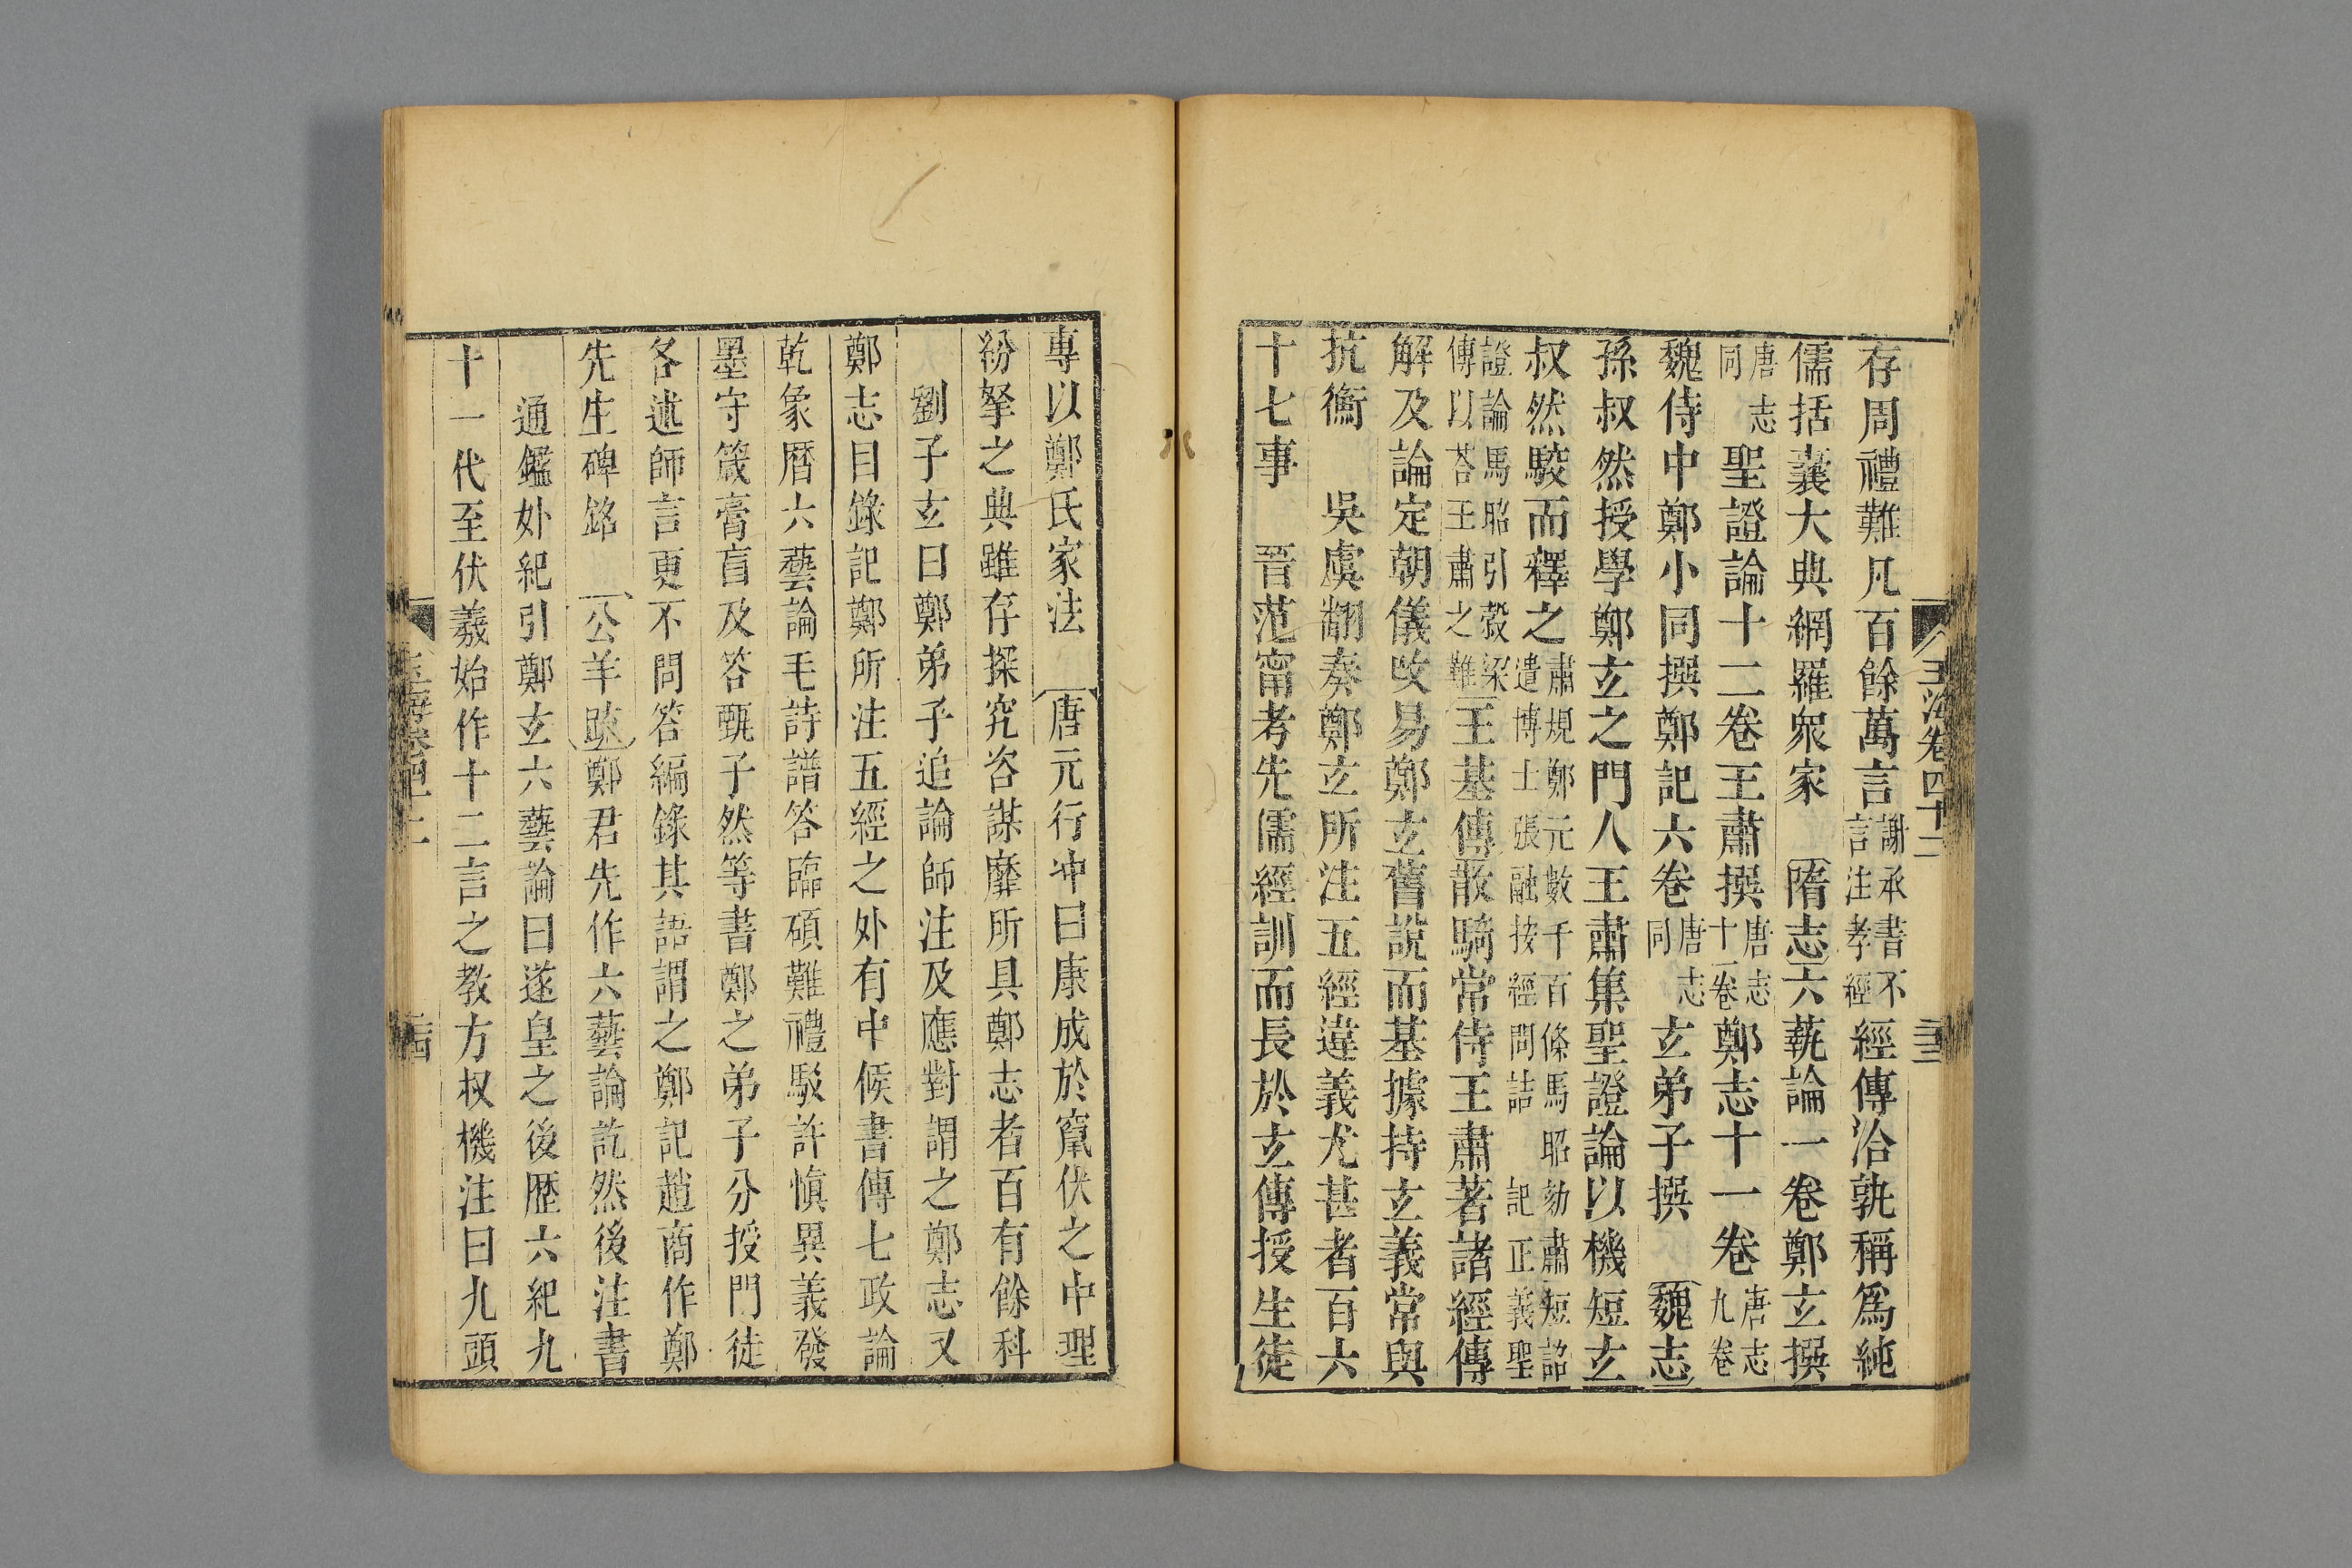 玉海卷四十二
三三
存周禮難凡百餘萬言謝承書不言注孝經經傳洽孰稱爲純
儒括囊大典網羅衆家隋志六蓺論一卷鄭玄撰
唐志同聖證論十二卷王肅撰唐志十一卷鄭志十一卷唐志九卷
魏侍中鄭小同撰鄭記六卷唐志同玄弟子撰魏志
孫叔然授學鄭玄之門人王肅集聖證論以機短玄
叔然駮而釋之肅規鄭元數千百條馬昭劾肅短詔遣博士張融按經問詰記正義聖
證論馬昭引穀梁傳以荅王肅之難王基傳散騎常侍王肅著諸經傳
解及論定朝儀改易鄭玄舊說而基據持玄義常與
抗衡吳虞翻奏鄭玄所注五經違義尤甚者百六
十七事晉范甯考先儒經訓而長於玄傳授生徒
專以鄭氏家法唐元行冲曰康成於竄伏之中理
紛挐之典雖存探究咨謀靡所具鄭志者百有餘科
劉子玄曰鄭弟子追論師注及應對謂之鄭志又
鄭志目錄記鄭所注五經之外有中候書傳七政論
乾象曆六藝論毛詩譜答臨碩難禮駁許慎異義發
墨守箴膏盲及答甄子然等書鄭之弟子分授門徒
各述師言更不問答編錄其語謂之鄭記趙商作鄭
先生碑銘公羊疏鄭君先作六藝論訖然後注書
通鑑外紀引鄭玄六藝論曰遂皇之後歷六紀九
十一代至伏羲始作十二言之敎方叔機注曰九頭
玉海卷四十二
三四